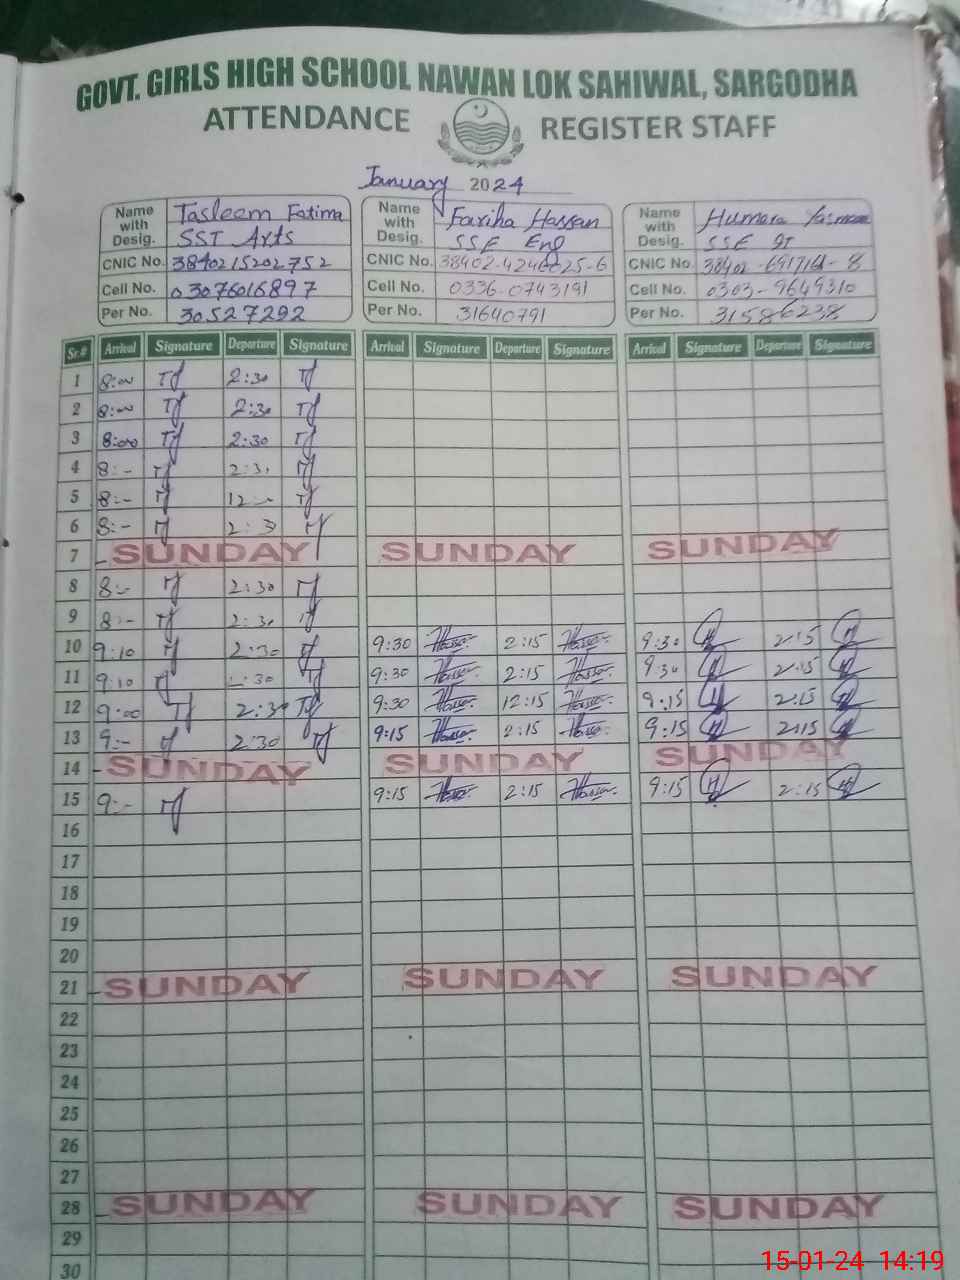 GOVT. GIRLS HIGH SCHOOL NAWAN LOK SAHIWAL, SARGODHA
ATTENDANCE REGISTER STAFF
January 2024
Name with Desig. Tasleem Fatima SST Arts
CNIC No. 3840215202752
Cell No. 03076016897
Per No. 30527292
Name with Desig. Fariha Hassan SSE Eng
CNIC No. 38402-4246025-6
Cell No. 0336-0743191
Per No. 31640791
Name with Desig. Humera Yasmeen SSE IT
CNIC No. 38402-6917161-8
Cell No. 0303-9649310
Per No. 31586238
Sr.# Arrival Signature Departure Signature Arrival Signature Departure Signature Arrival Signature Departure Signature
1 8:00 TF 2:30 TF
2 8:00 TF 2:30 TF
3 8:00 TF 2:30 TF
4 8:- TF 2:30 TF
5 8:- TF 12:- TF
6 8:- TF 2:30 TF
7 SUNDAY SUNDAY SUNDAY
8 8:- TF 2:30 TF
9 8:- TF 2:30 TF
10 9:10 TF 2:30 TF 9:30 Hassan 2:15 Hassan 9:30 H 2:15 H
11 9:10 TF 2:30 TF 9:30 Hassan 2:15 Hassan 9:30 H 2:15 H
12 9:00 TF 2:30 TF 9:30 Hassan 12:15 Hassan 9:15 H 2:15 H
13 9:- TF 2:30 TF 9:15 Hassan 2:15 Hassan 9:15 H 2:15 H
14 SUNDAY SUNDAY SUNDAY
15 9:- TF 9:15 Hassan 2:15 Hassan 9:15 H 2:15 H
16
17
18
19
20
21 SUNDAY SUNDAY SUNDAY
22
23
24
25
26
27
28 SUNDAY SUNDAY SUNDAY
29
30
15-01-24 14:19